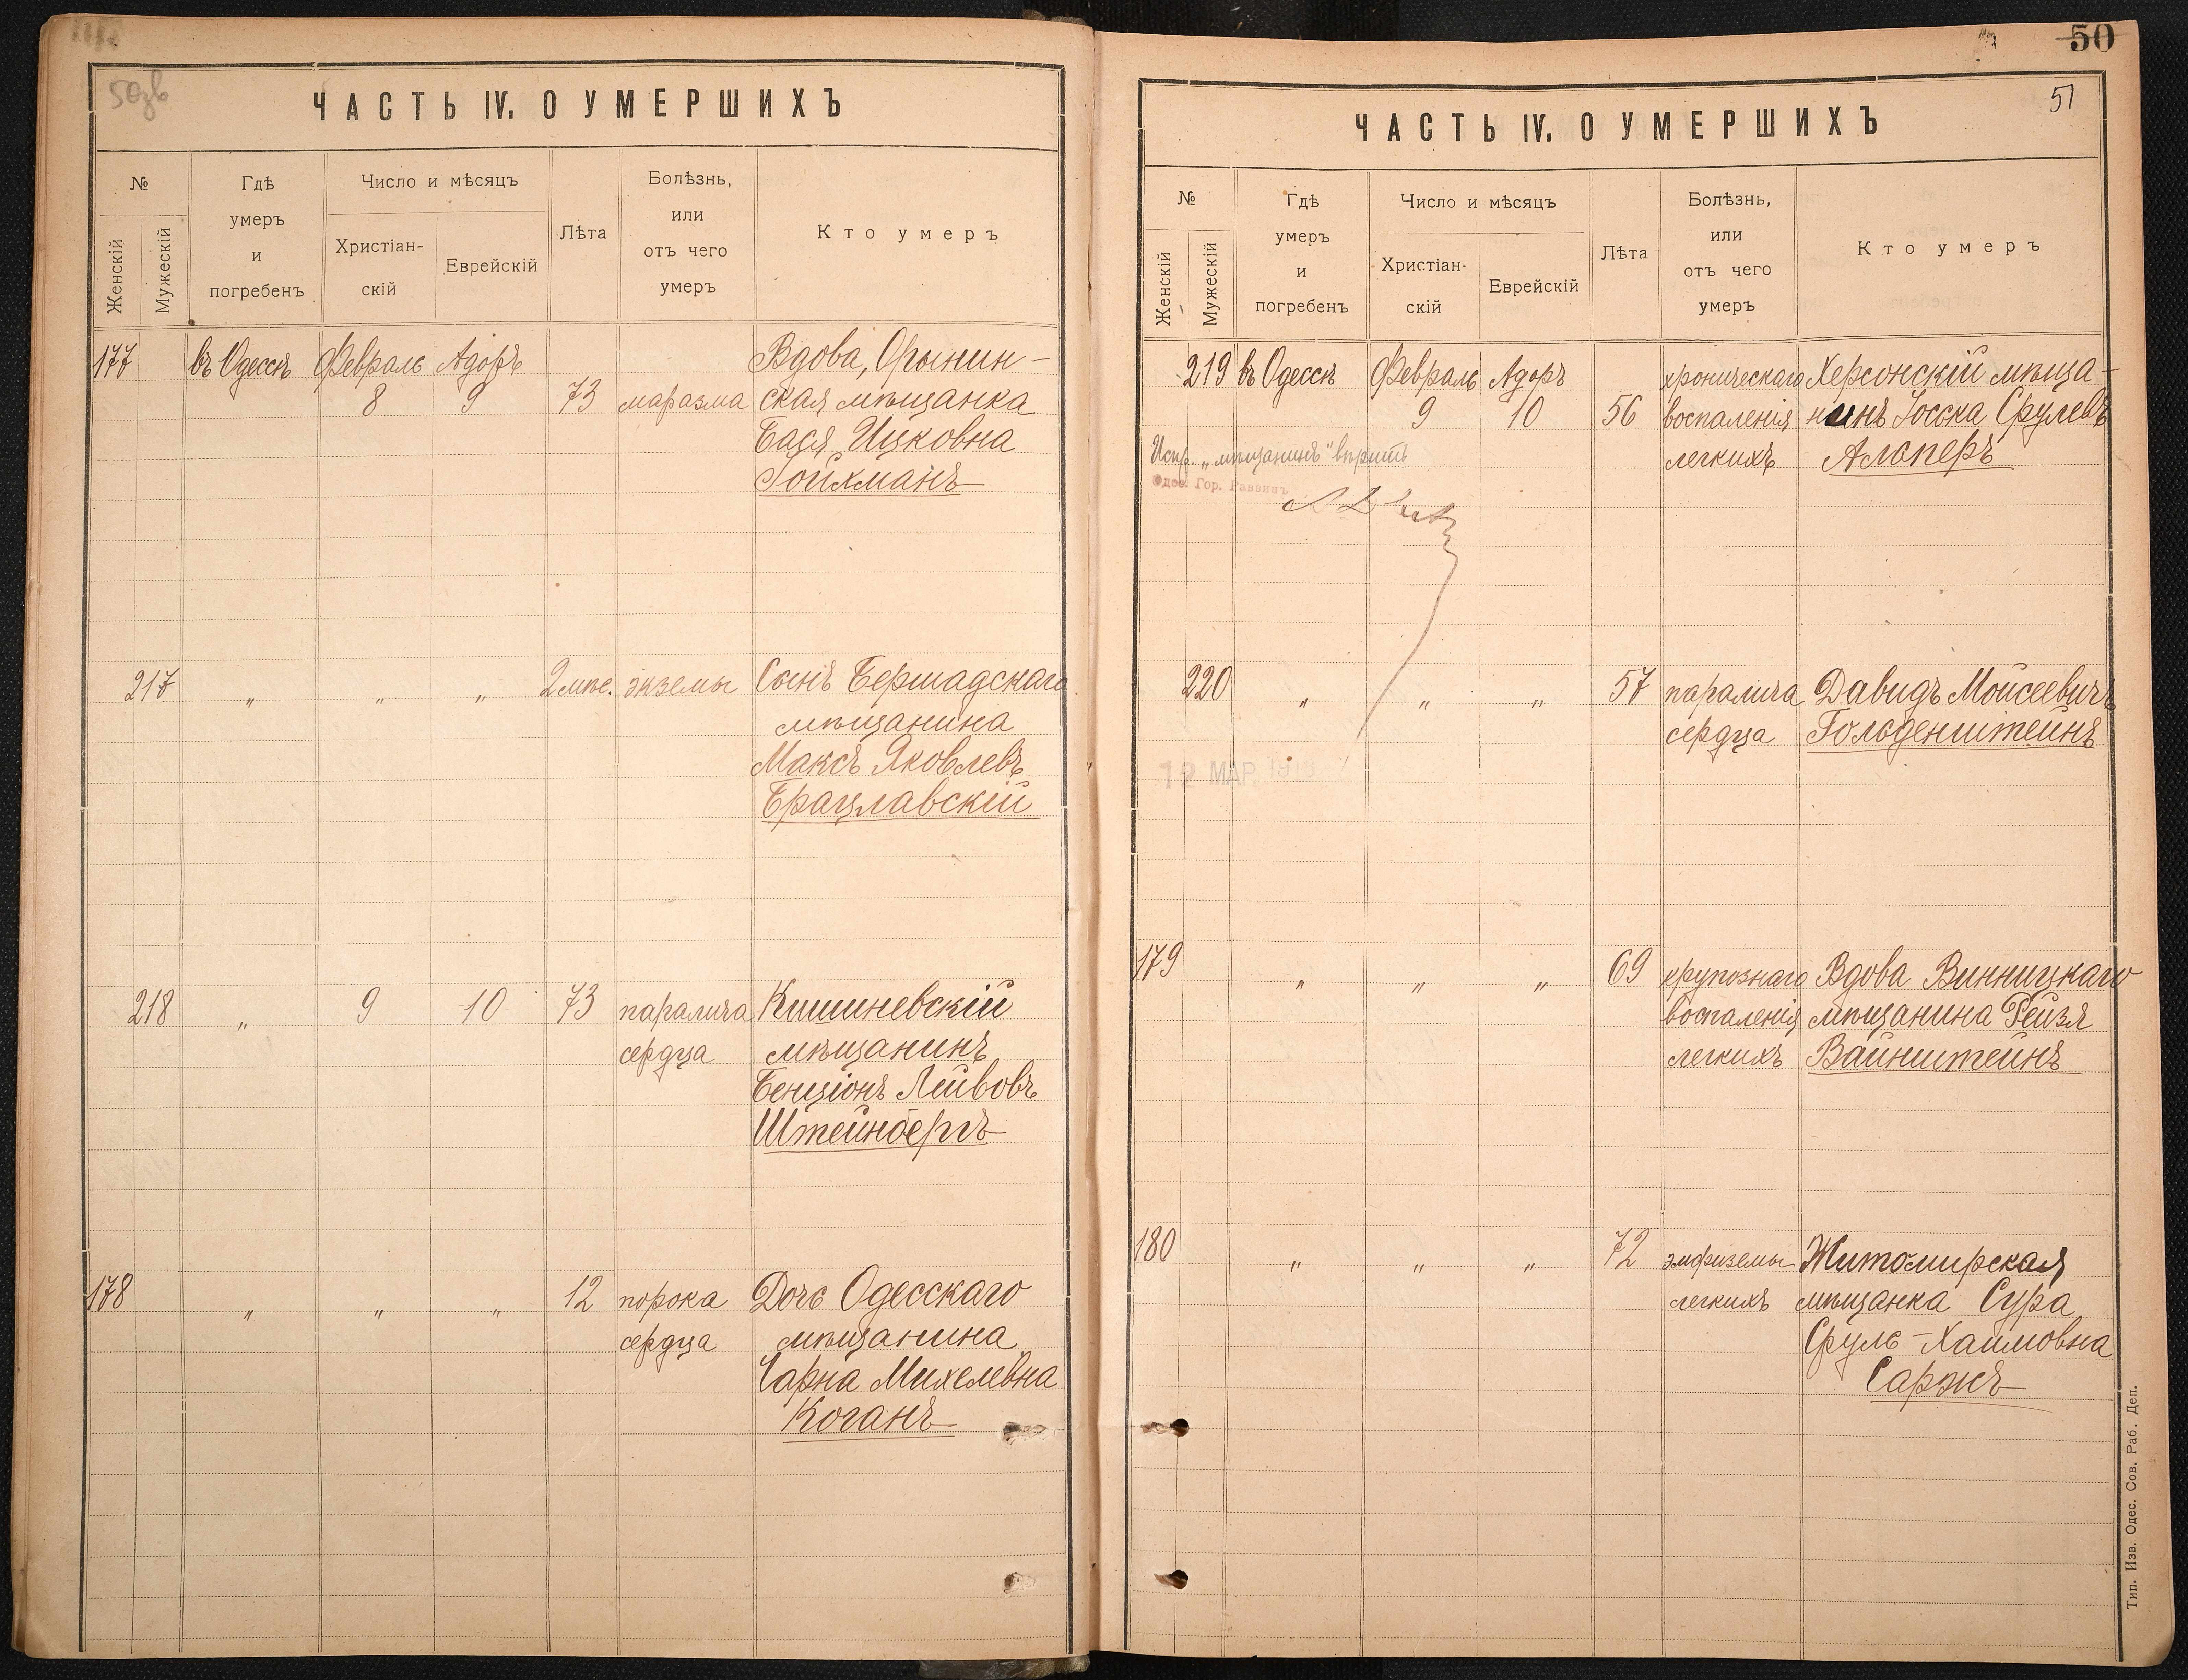 50зв
ЧАСТЬ IV. О УМЕРШИХЪ
№
Женскій
Мужескій
Гдѣ
умеръ
и
погребенъ
Число и мѣсяцъ
Христіан-
скій
Еврейскій
Лѣта
Болѣзнь,
или
отъ чего
умеръ
Кто умеръ
177 въ Одессѣ Февраль Адоръ Вдова, Орынин-
8 9 73 маразма ская мѣщанка
Бася Ицковна
Гойхманъ
217 " " " 2 мѣс. экземы Сынъ Бершадскаго
мѣщанина
Максъ Яковлевъ
Брацлавскій
218 " 9 10 73 паралича Кишиневскій
сердца мѣщанинъ
Бенціонъ Лейвовъ
Штейнбергъ
178 " " " 12 порока Дочь Одесскаго
сердца мѣщанина
Чарна Михелевна
Коганъ
50
51
ЧАСТЬ IV. О УМЕРШИХЪ
№
Женскій
Мужескій
Гдѣ
умеръ
и
погребенъ
Число и мѣсяцъ
Христіан-
скій
Еврейскій
Лѣта
Болѣзнь,
или
отъ чего
умеръ
Кто умеръ
219 въ Одессѣ Февраль Адоръ хроническаго Херсонскій мѣща-
9 10 56 воспаленія нинъ Іосска Срулевъ
легкихъ Альперъ
Испр. „мѣщанинъ" вѣрить
Одес. Гор. Раввинъ
220 " " " 57 паралича Давидъ Мойсеевичъ
сердца Гольденштейнъ
12 МАР. 191
179 " " " 69 крупознаго Вдова Винницкаго
воспаленія мѣщанина Рейзя
легкихъ Вайнштейнъ
180 " " " 72 эмфиземы Житомирская
легкихъ мѣщанка Сура
Сруль-Хаимовна
Саржъ
Тип. Изв. Одес. Сов. Раб. Деп.